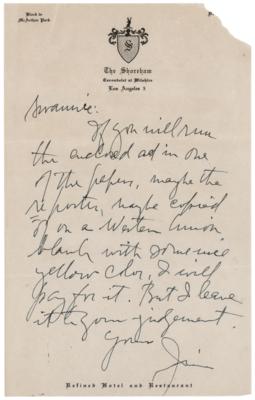 Block to
McArthur Park
S
The Shoreham
Carondelet at Wilshire
Los Angeles 5
Swannie:
If you will run
the enclosed ad in one
of the papers, maybe the
reporter, maybe copied
on a Western Union
blank with some nice
yellow color, I will
pay for it. But I leave
it to your judgement.
Yours Jim
Refined Hotel and Restaurant